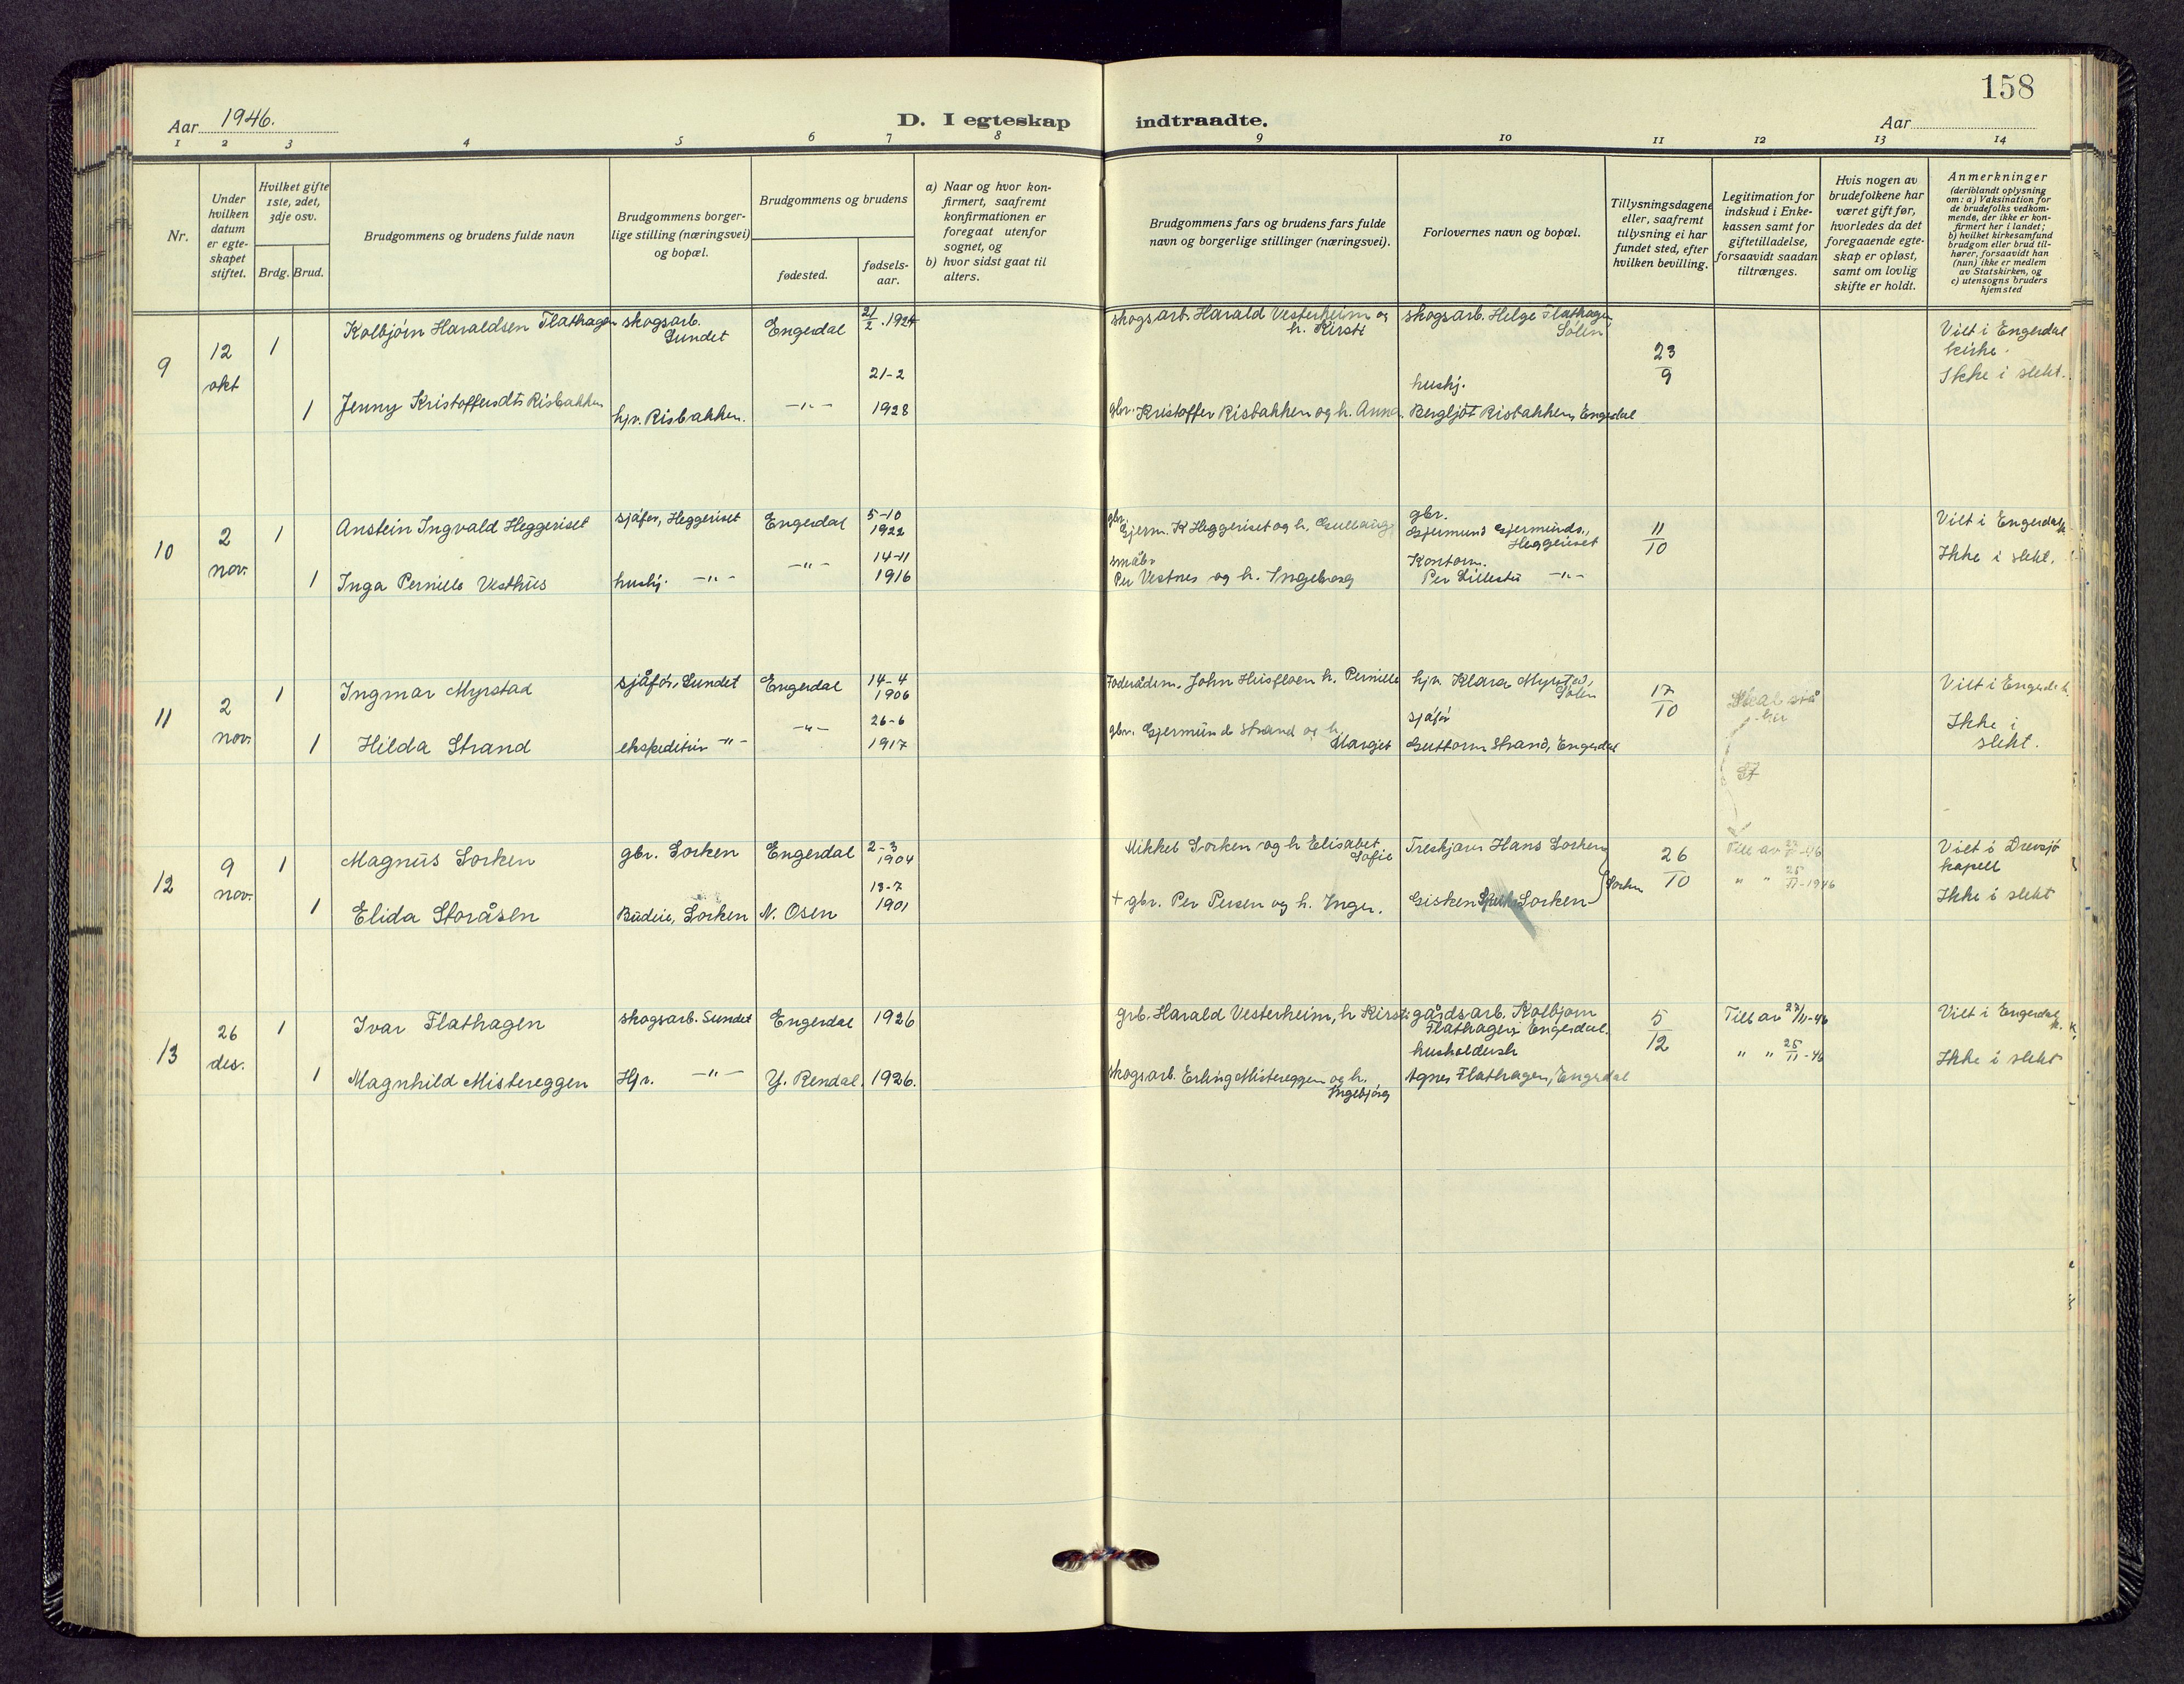 158
Aar 1946.
D. I egteskap indtraadte.
Aar
1 2 3 4 5 6 7 8 9 10 11 12 13 14
Nr.
Under hvilken datum er egte-skapet stiftet.
Hvilket gifte 1ste, 2det, 3dje osv.
Brdg. Brud.
Brudgommens og brudens fulde navn
Brudgommens borger-lige stilling (næringsvei) og bopæl.
Brudgommens og brudens
fødested.
fødsels-aar.
a) Naar og hvor kon-firmert, saafremt konfirmationen er foregaat utenfor sognet, og
b) hvor sidst gaat til alters.
Brudgommens fars og brudens fars fulde navn og borgerlige stillinger (næringsvei).
Forlovernes navn og bopæl.
Tillysningsdagene eller, saafremt tillysning ei har fundet sted, efter hvilken bevilling.
Legitimation for indskud i Enke-kassen samt for giftetilladelse, forsaavidt saadan tiltrænges.
Hvis nogen av brudefolkene har været gift før, hvorledes da det foregaaende egte-skap er opløst, samt om lovlig skifte er holdt.
Anmerkninger
(deriblandt oplysning om: a) Vaksination for de brudefolks vedkom-mende, der ikke er kon-firmert her i landet; b) hvilket kirkesamfund brudgom eller brud til-hører, forsaavidt han (hun) ikke er medlem av Statskirken, og c) utensogns bruders hjemsted
9 12 okt 1 Kolbjørn Haraldsen Flathagen skogsarb. Sundet Engerdal 21/2.1924 skogsarb. Harald Vesterheim og h. Kirsti skogsarb. Helge Flathagen Sølen 23/9 Vilt i Engerdal kirke. Ikke i slekt.
1 Jenny Kristoffersdtr Risbakken hjv. Risbakken. -"- 21-2 1928 gbr. Kristoffer Risbakken og h. Anna. hushj. Bergljot Risbakken, Engerdal
10 2 nov. 1 Anstein Ingvald Heggeriset sjåfør, Heggeriset Engerdal 5-10 1922 gbr. Gjerm. K Heggeriset og h. Gullaug gbr. Gjermund Gjermunds. Heggeriset 11/10 Vilt i Engerdal k. Ikke i slekt.
1 Inga Pernille Vesthus hushj. -"- -"- 14-11 1916 småbr Per Vestnes og h. Ingeborg Kontorm. Per Lillestu -"-
11 2 nov. 1 Ingmar Myrstad sjåfør, Sundet Engerdal 14-4 1906 Foderådsm. John Husfloen h. Pernille hjv. Klara Myrstad, Sølen 17/10 Skal stå her Vilt i Engerdal k. Ikke i slekt.
1 Hilda Strand ekspeditur -"- -"- 26-6 1917 gbr. Gjermund Strand og h. Marget sjåfør Guttorm Strand, Engerdal
12 9 nov. 1 Magnus Sorken gbr. Sorken Engerdal 2-3 1904 Mikkel Sorken og h Elisabet Sofie Treskjærer Hans Sorken } Sorken 26/10 Till av 23/11-46 Vilt i Drevsjø kapell Ikke i slekt
1 Elida Storåsen Budeie, Sorken N. Osen 13-7 1901 + gbr. Per Persen og h. Inger. Gisken Sorken " " 25/11-1946
13 26 des. 1 Ivar Flathagen skogsarb. Sundet Engerdal 1926 grb. Harald Vesterheim, h Kirsti gårdsarb. Kolbjørn Flathagen Engerdal. 5/12 Till av 23/11-46 Vilt i Engerdal k. Ikke i slekt
1 Magnhild Mistereggen Hjv. -"- Y. Rendal. 1926. skogsarb. Erling Mistereggen og h. Ingebjørg husholdersk Agnes Flathagen, Engerdal " " 25/11-46